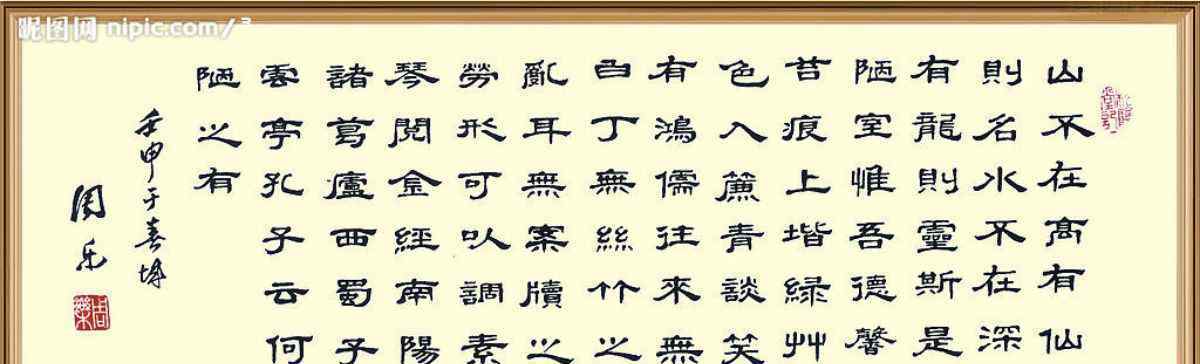 昵图网 nipic.com/
山不在高有仙
則名水不在深
有龍則靈斯是
陋室惟吾德馨
苔痕上堦緑艸
色入簾青談笑
有鴻儒往來無
白丁無絲竹之
亂耳無案牘之
勞形可以調素
琴閲金經南陽
諸葛廬西蜀子
雲亭孔子云何
陋之有
壬申于春城
周乐
周樂